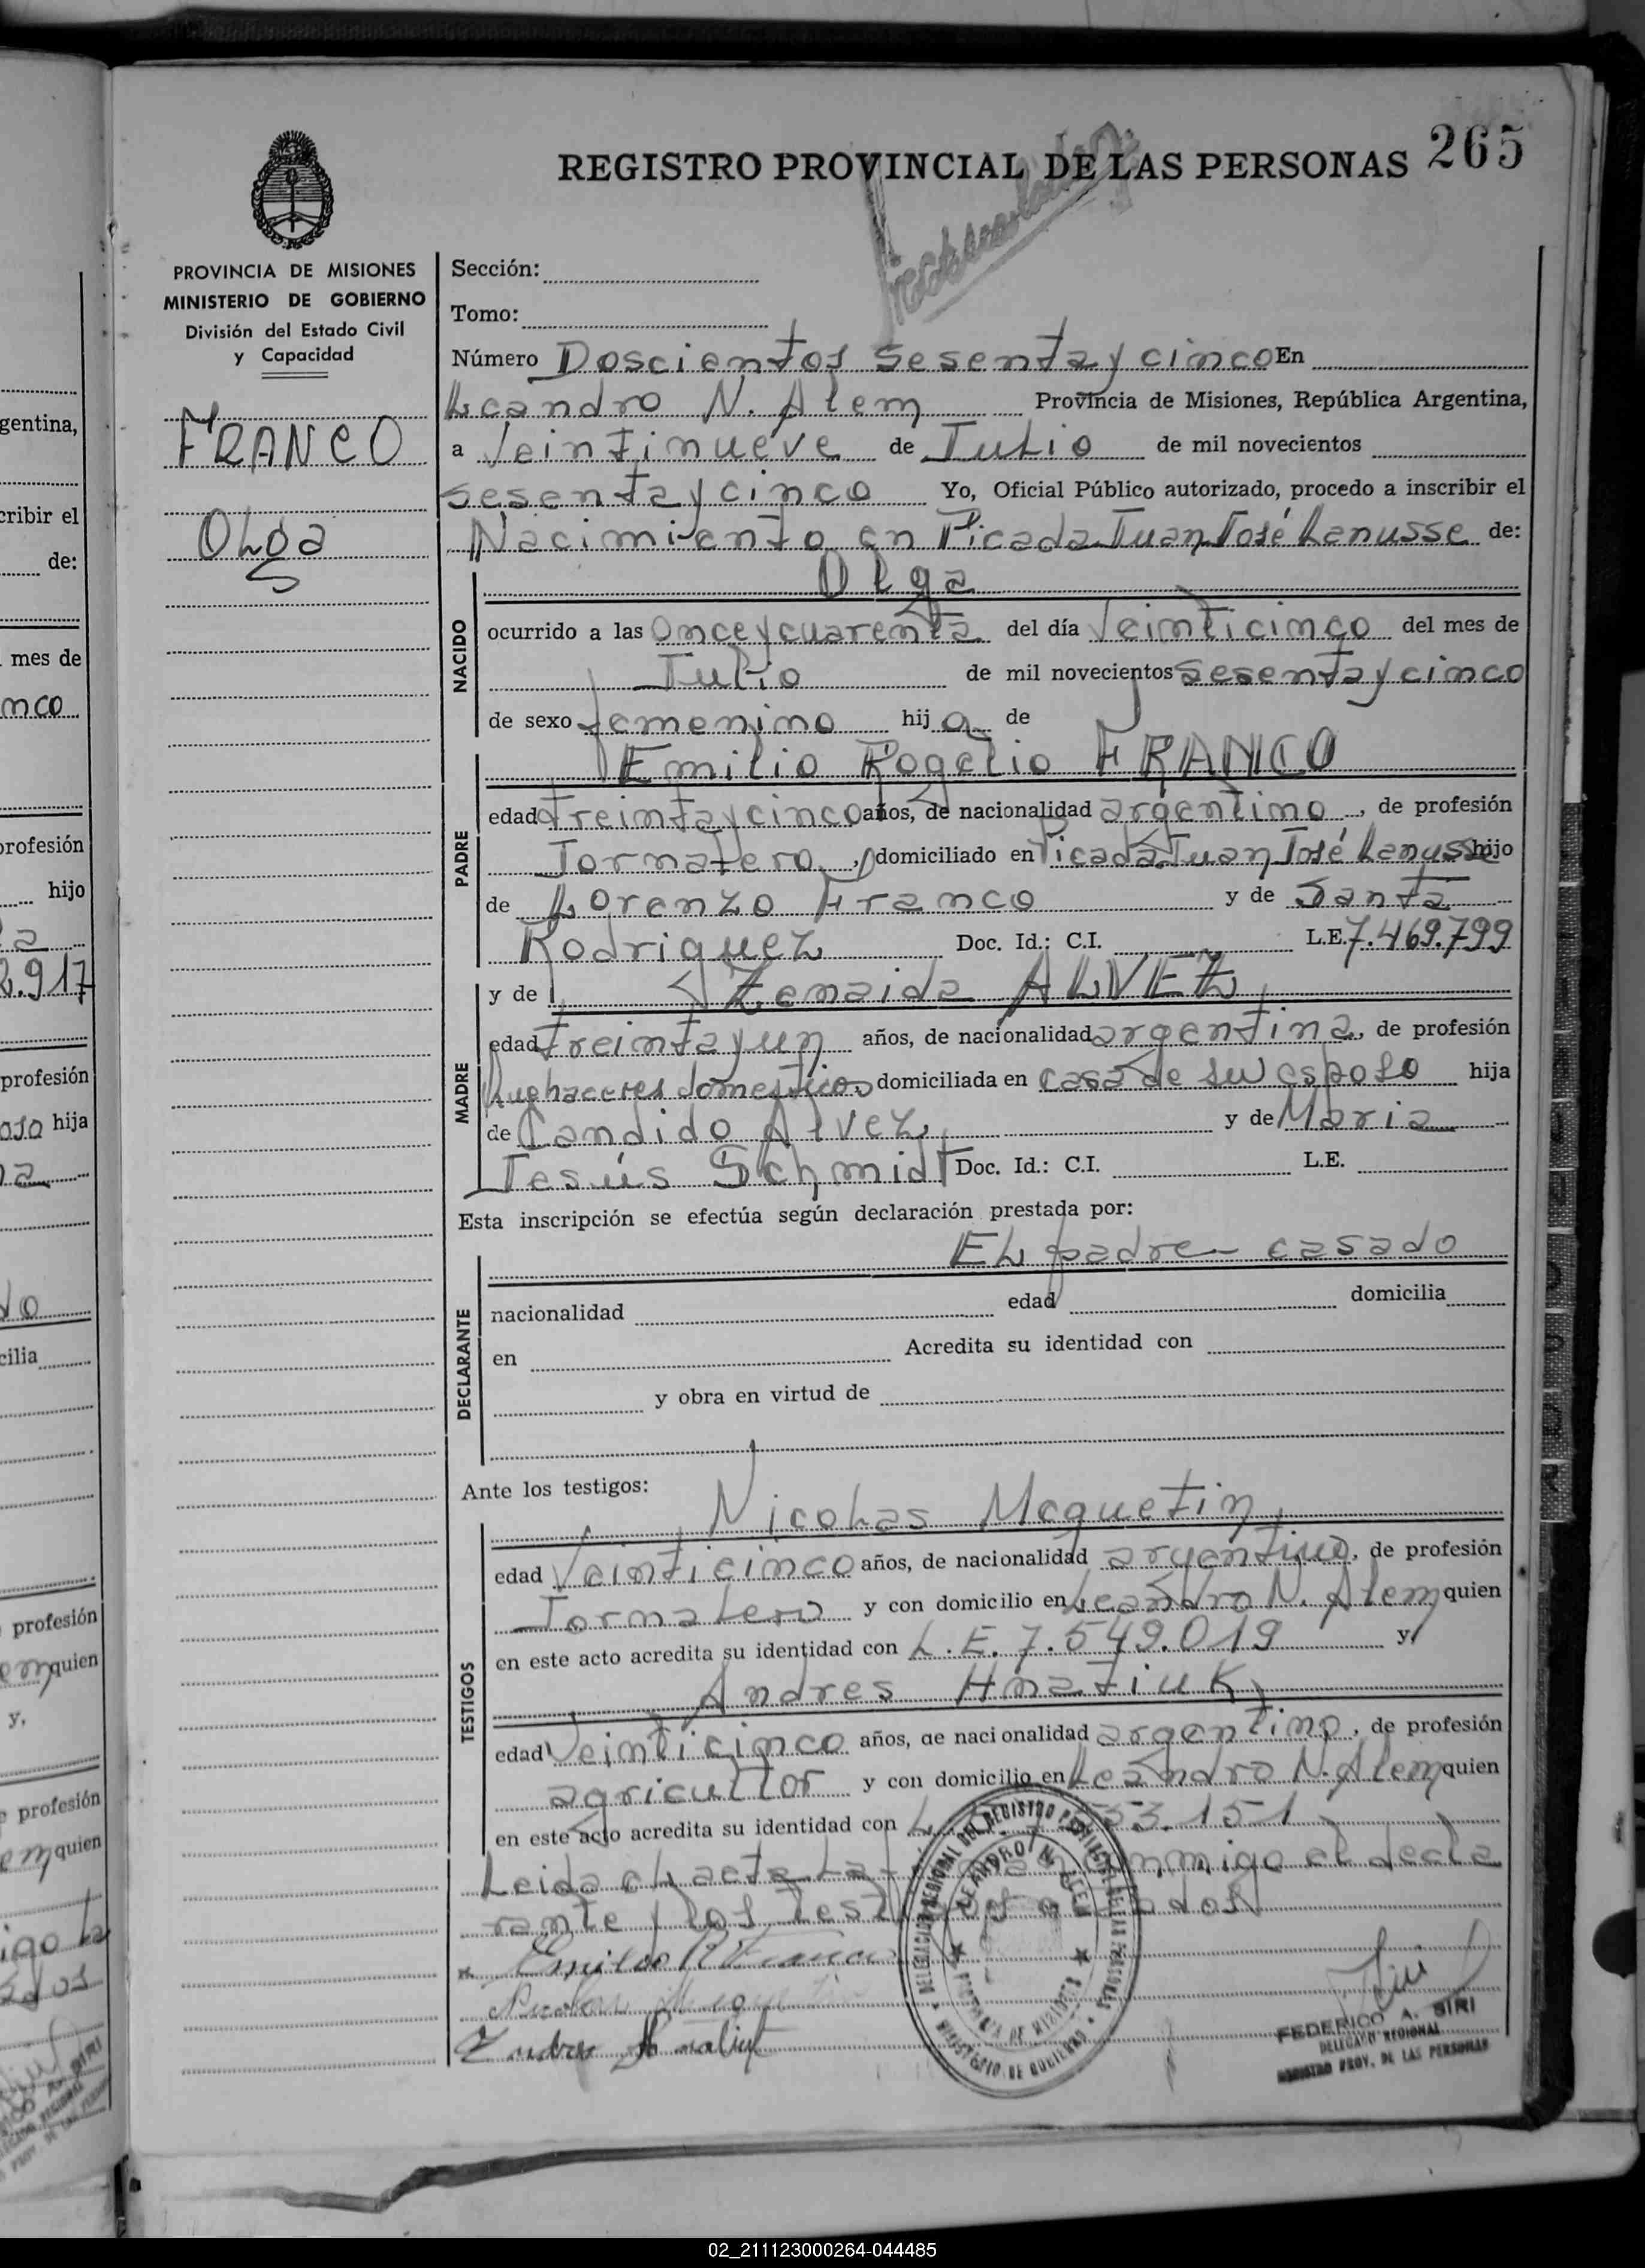 REGISTRO PROVINCIAL DE LAS PERSONAS 265
PROVINCIA DE MISIONES
MINISTERIO DE GOBIERNO
División del Estado Civil
y Capacidad
FRANCO
Olga
Sección:
Tomo:
Número Doscientos sesenta y cinco En
Leandro N. Alem Provincia de Misiones, República Argentina,
a Veintinueve de Julio de mil novecientos
sesenta y cinco Yo, Oficial Público autorizado, procedo a inscribir el
Nacimiento en Picada Juan José Lanusse de:
Olga
NACIDO
ocurrido a las Once y cuarenta del día Veinticinco del mes de
Julio de mil novecientos sesenta y cinco
de sexo femenino hija de
Emilio Rogelio FRANCO
PADRE
edad treinta y cinco años, de nacionalidad argentino, de profesión
Jornalero, domiciliado en Picada Juan José Lanusse hijo
de Lorenzo Franco y de Santa
Rodriguez Doc. Id.: C.I. L.E. 7.469.799
y de Zenaida ALVEZ
MADRE
edad treinta y un años, de nacionalidad argentina, de profesión
domesticos domiciliada en casa de su esposo hija
de Candido Alvez y de Maria
Jesús Schmidt Doc. Id.: C.I. L.E.
Esta inscripción se efectúa según declaración prestada por:
El padre - casado
DECLARANTE
nacionalidad edad domicilia
en Acredita su identidad con
y obra en virtud de
Ante los testigos:
Nicolas Mequetin
TESTIGOS
edad Veinticinco años, de nacionalidad argentino, de profesión
Jornalero y con domicilio en Leandro N. Alem quien
en este acto acredita su identidad con L.E. 7.549.019 y,
Andres Hnatiuk
edad Veinticinco años, de nacionalidad argentino, de profesión
agricultor y con domicilio en Leandro N. Alem quien
en este acto acredita su identidad con 53.151
Leida el acta la conmigo el decla
rante y los testigos
Emilio R Franco
FEDERICO A. SIRI
DELEGADO REGIONAL
REGISTRO PROV. DE LAS PERSONAS
02_211123000264-044485